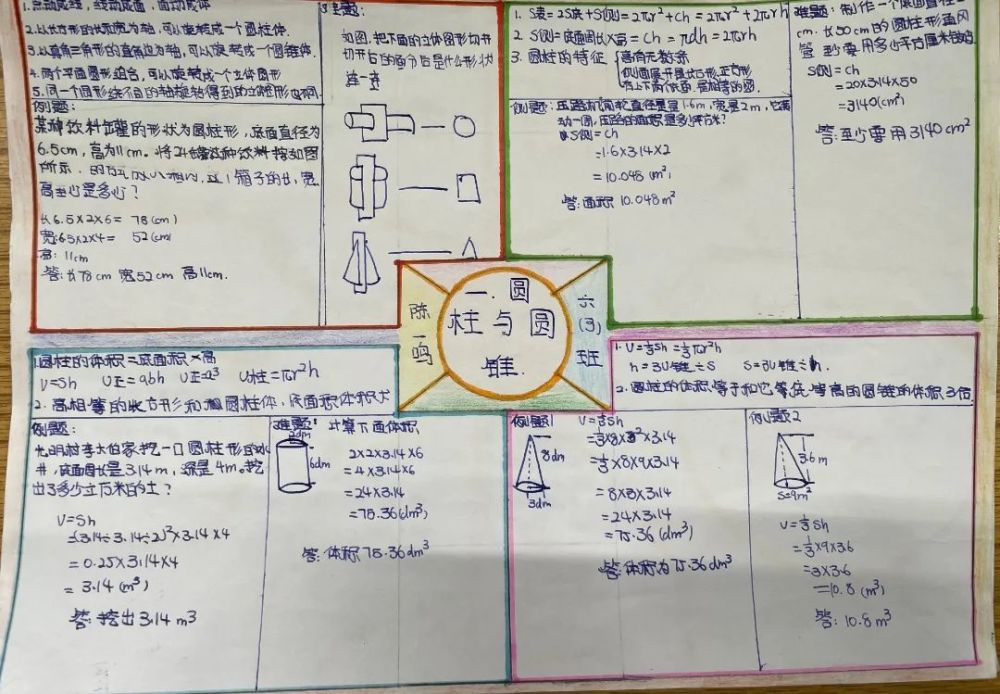 1.点动成线,线动成面,面动成体
2.以长方形的长或宽为轴,可以旋转成一个圆柱体.
3.以直角三角形的直角边为轴,可以旋转成一个圆锥体.
4.两个平面图形组合,可以旋转成一个立体图形
5.同一个图形绕不同的轴旋转得到的立体图形不同.
例题:
某种饮料罐的形状为圆柱形,底面直径为
6.5cm,高为11cm。将24罐这种饮料按如图
所示
高至少是多少?
长6.5×2×6= 78(cm)
宽:6.5×2×4= 52(cm)
高: 11cm
答:长78cm 宽52cm 高11cm.
如图,把下面的立体图形切开
切开后的面分后是什么形状
连一连
1. S表=2S底+S侧=2πr²+Ch=2πr²+2πrh
2. S侧=底面周长×高=Ch=πdh=2πrh
3. 圆柱的特征
高有无数条
侧面展开是长方形.正方形
例题:压路机前轮直径是1.6m,宽是2m,它滚
动一周,压路的面积是多少平方米?
S侧=Ch
=1.6×3.14×2
=10.048(m²)
答:面积 10.048m²
难题:制作一个底面直径
cm.长50cm的圆柱形通风
管,至少要用多少平方厘米
S侧=Ch
=20×3.14×50
=3140(cm²)
答:至少要用3140cm²
陈一鸣
一.圆
柱与圆
锥.
六(3)班
1.圆柱的体积=底面积×高
V=Sh V正=abh V正=a³ V柱=πr²h
2. 高相等的长方形和圆柱体,底面积体积大
例题:
光明村李大伯家挖一口圆柱形的水
井,底面周长是3.14m,深是4m.挖
出了多少立方米的土?
V=Sh
=(3.14÷3.14÷2)²×3.14×4
=0.25×3.14×4
=3.14(m³)
答:挖出3.14m³
难题: 计算下面体积
2dm
6dm
2×2×3.14×6
=4×3.14×6
=24×3.14
=75.36(dm³)
答:体积75.36dm³
1. V=⅓Sh=⅓πr²h
h=3V锥÷S S=3V锥÷h.
2.圆柱的体积等于和它等底等高的圆锥的体积3倍
例题1
8dm
3dm
V=⅓Sh
=⅓×8×3²×3.14
=⅓×8×9×3.14
=8×3×3.14
=24×3.14
=75.36(dm³)
答:体积为75.36dm³
例题2
3.6m
S=9m²
V=⅓Sh
=⅓×9×3.6
=3×3.6
=10.8(m³)
答:10.8m³